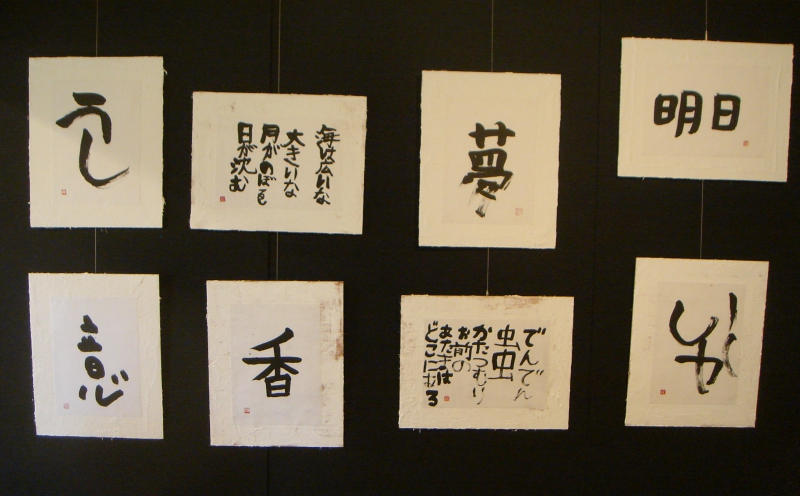 うし
海は広いな
大きいな
月がのぼるし
日が沈む
夢
明日
意
香
でんでん
虫虫
かたつむり
お前の
あたまは
どこにある